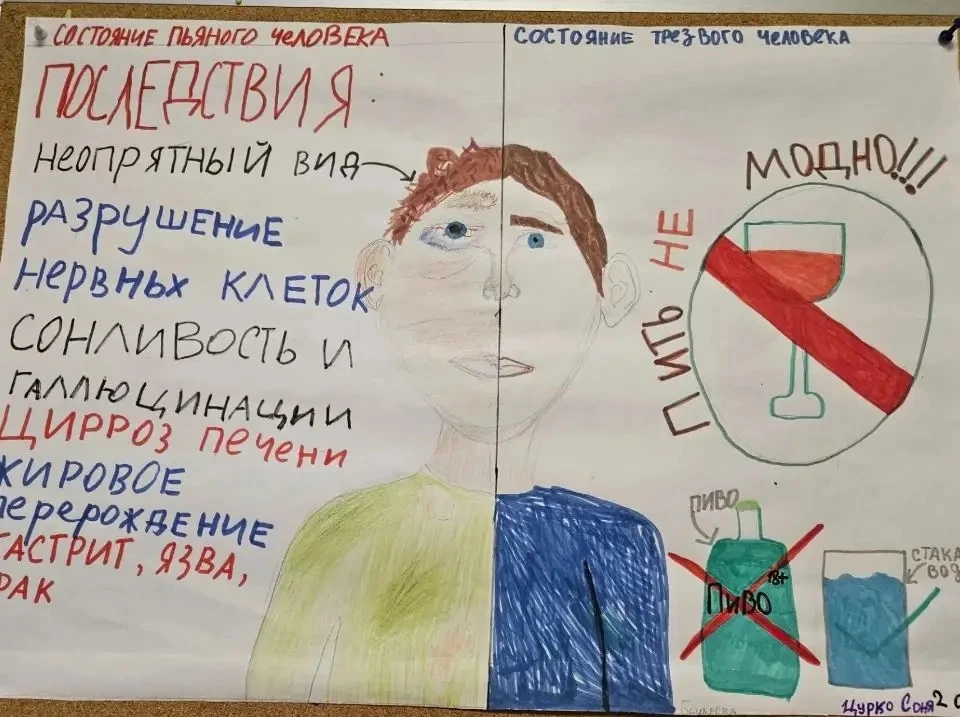 СОСТОЯНИЕ ПЬЯНОГО ЧЕЛОВЕКА
ПОСЛЕДСТВИЯ
НЕОПРЯТНЫЙ ВИД
РАЗРУШЕНИЕ
НЕРВНЫХ КЛЕТОК
СОНЛИВОСТЬ И
ГАЛЛЮЦИНАЦИИ
ЦИРРОЗ ПЕЧЕНИ
ЖИРОВОЕ
ПЕРЕРОЖДЕНИЕ
ГАСТРИТ, ЯЗВА,
РАК
СОСТОЯНИЕ ТРЕЗВОГО ЧЕЛОВЕКА
ПИТЬ НЕ МОДНО!!!
ПИВО
ПИВО 18+
СТАКА
ВОД
Цурко Соня 2